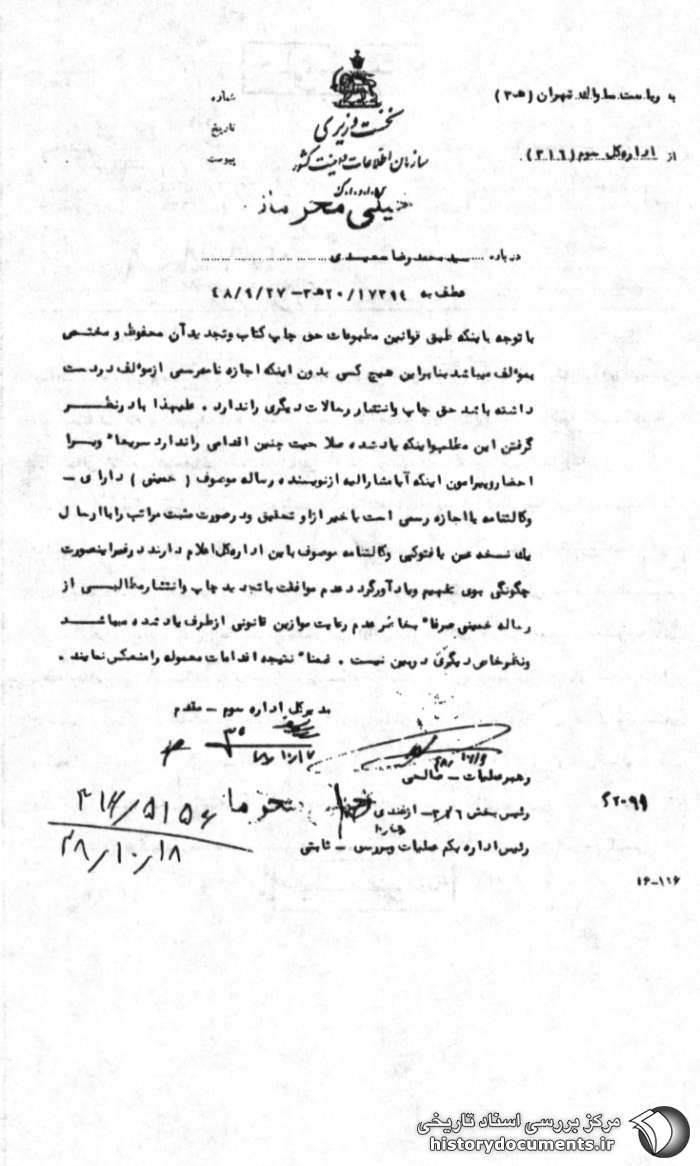 به ریاست ساواک تهران (۲۰ﻫ۳)
شماره
از اداره کل سوم (۳۱۶)
تاریخ
پیوست
نخست وزیری
سازمان اطلاعات و امنیت کشور
خیلی محرمانه
درباره سید محمد رضا سعیدی
عطف به ۱۷۲۹۴/۲۰ﻫ۳-۴۸/۹/۲۷
با توجه باینکه طبق قوانین مطبوعات حق چاپ کتاب وتجدید آن محفوظ و مختص
بمولف میباشد بنابراین هیچ کسی بدون اینکه اجازه نامه رسمی از مولف در دست
داشته باشد حق چاپ وانتشار رسالات دیگری را ندارد . علیهذا با در نظر
گرفتن این مطلب واینکه یاد شده صلاحیت چنین اقدامی را ندارد سریعا" ویرا
احضار و پیرامون اینکه آیا مشارالیه از نویسنده رساله موصوف ( خمینی ) دارای -
وکالتنامه یا اجازه رسمی است یا خیر از او تحقیق و در صورت مثبت مراتب را با ارسال
یک نسخه عین یا فتوکپی وکالتنامه موصوف باین اداره کل اعلام دارند در غیر اینصورت
چگونگی بوی تفهیم و یادآور گردد عدم موافقت با تجدید چاپ وانتشار مطالبی از
رساله خمینی صرفا" بخاطر عدم رعایت موازین قانونی از طرف یاد شده میباشد
ونظر خاص دیگری در بین نیست . ضمنا" نتیجه اقدامات معموله را منعکس نمایند .
مدیر کل اداره سوم - مقدم
رهبر عملیات - صالحی
رئیس بخش ۳۱۶ - ازغندی
رئیس اداره یکم عملیات وبررسی - ثابتی
خیلی محرمانه
۳۱۶/۵۱۵۶
۴۸/۱۰/۱۸
۵۲۰۹۹
۱۶-۱۱۶
مرکز بررسی اسناد تاریخی
historydocuments.ir